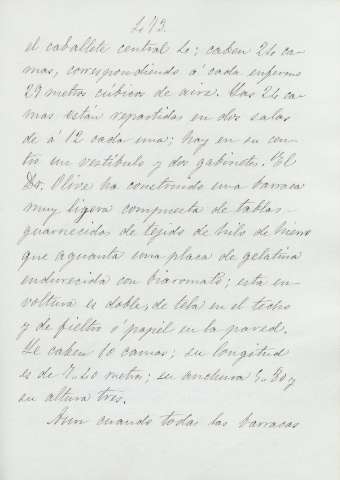 el caballete central 4; caben 24 ca-
mas, correspondiendo á cada enfermo
29 metros cúbicos de aire. Las 24 ca-
mas están repartidas en dos salas
de á 12 cada una; hay en su cen-
tro un vestíbulo y dos gabinetes. El
Dr. Olive ha construido una barraca
muy ligera compuesta de tablas
guarnecida de tejido de hilo de hierro
que aguanta una placa de gelatina
endurecida con bicromato; esta en-
voltura es doble, de tela en el techo
y de fieltro ó papel en la pared.
Se caben 10 camas; su longitud
es de metros; su anchura y
su altura tres.
Aun cuando todas las barracas